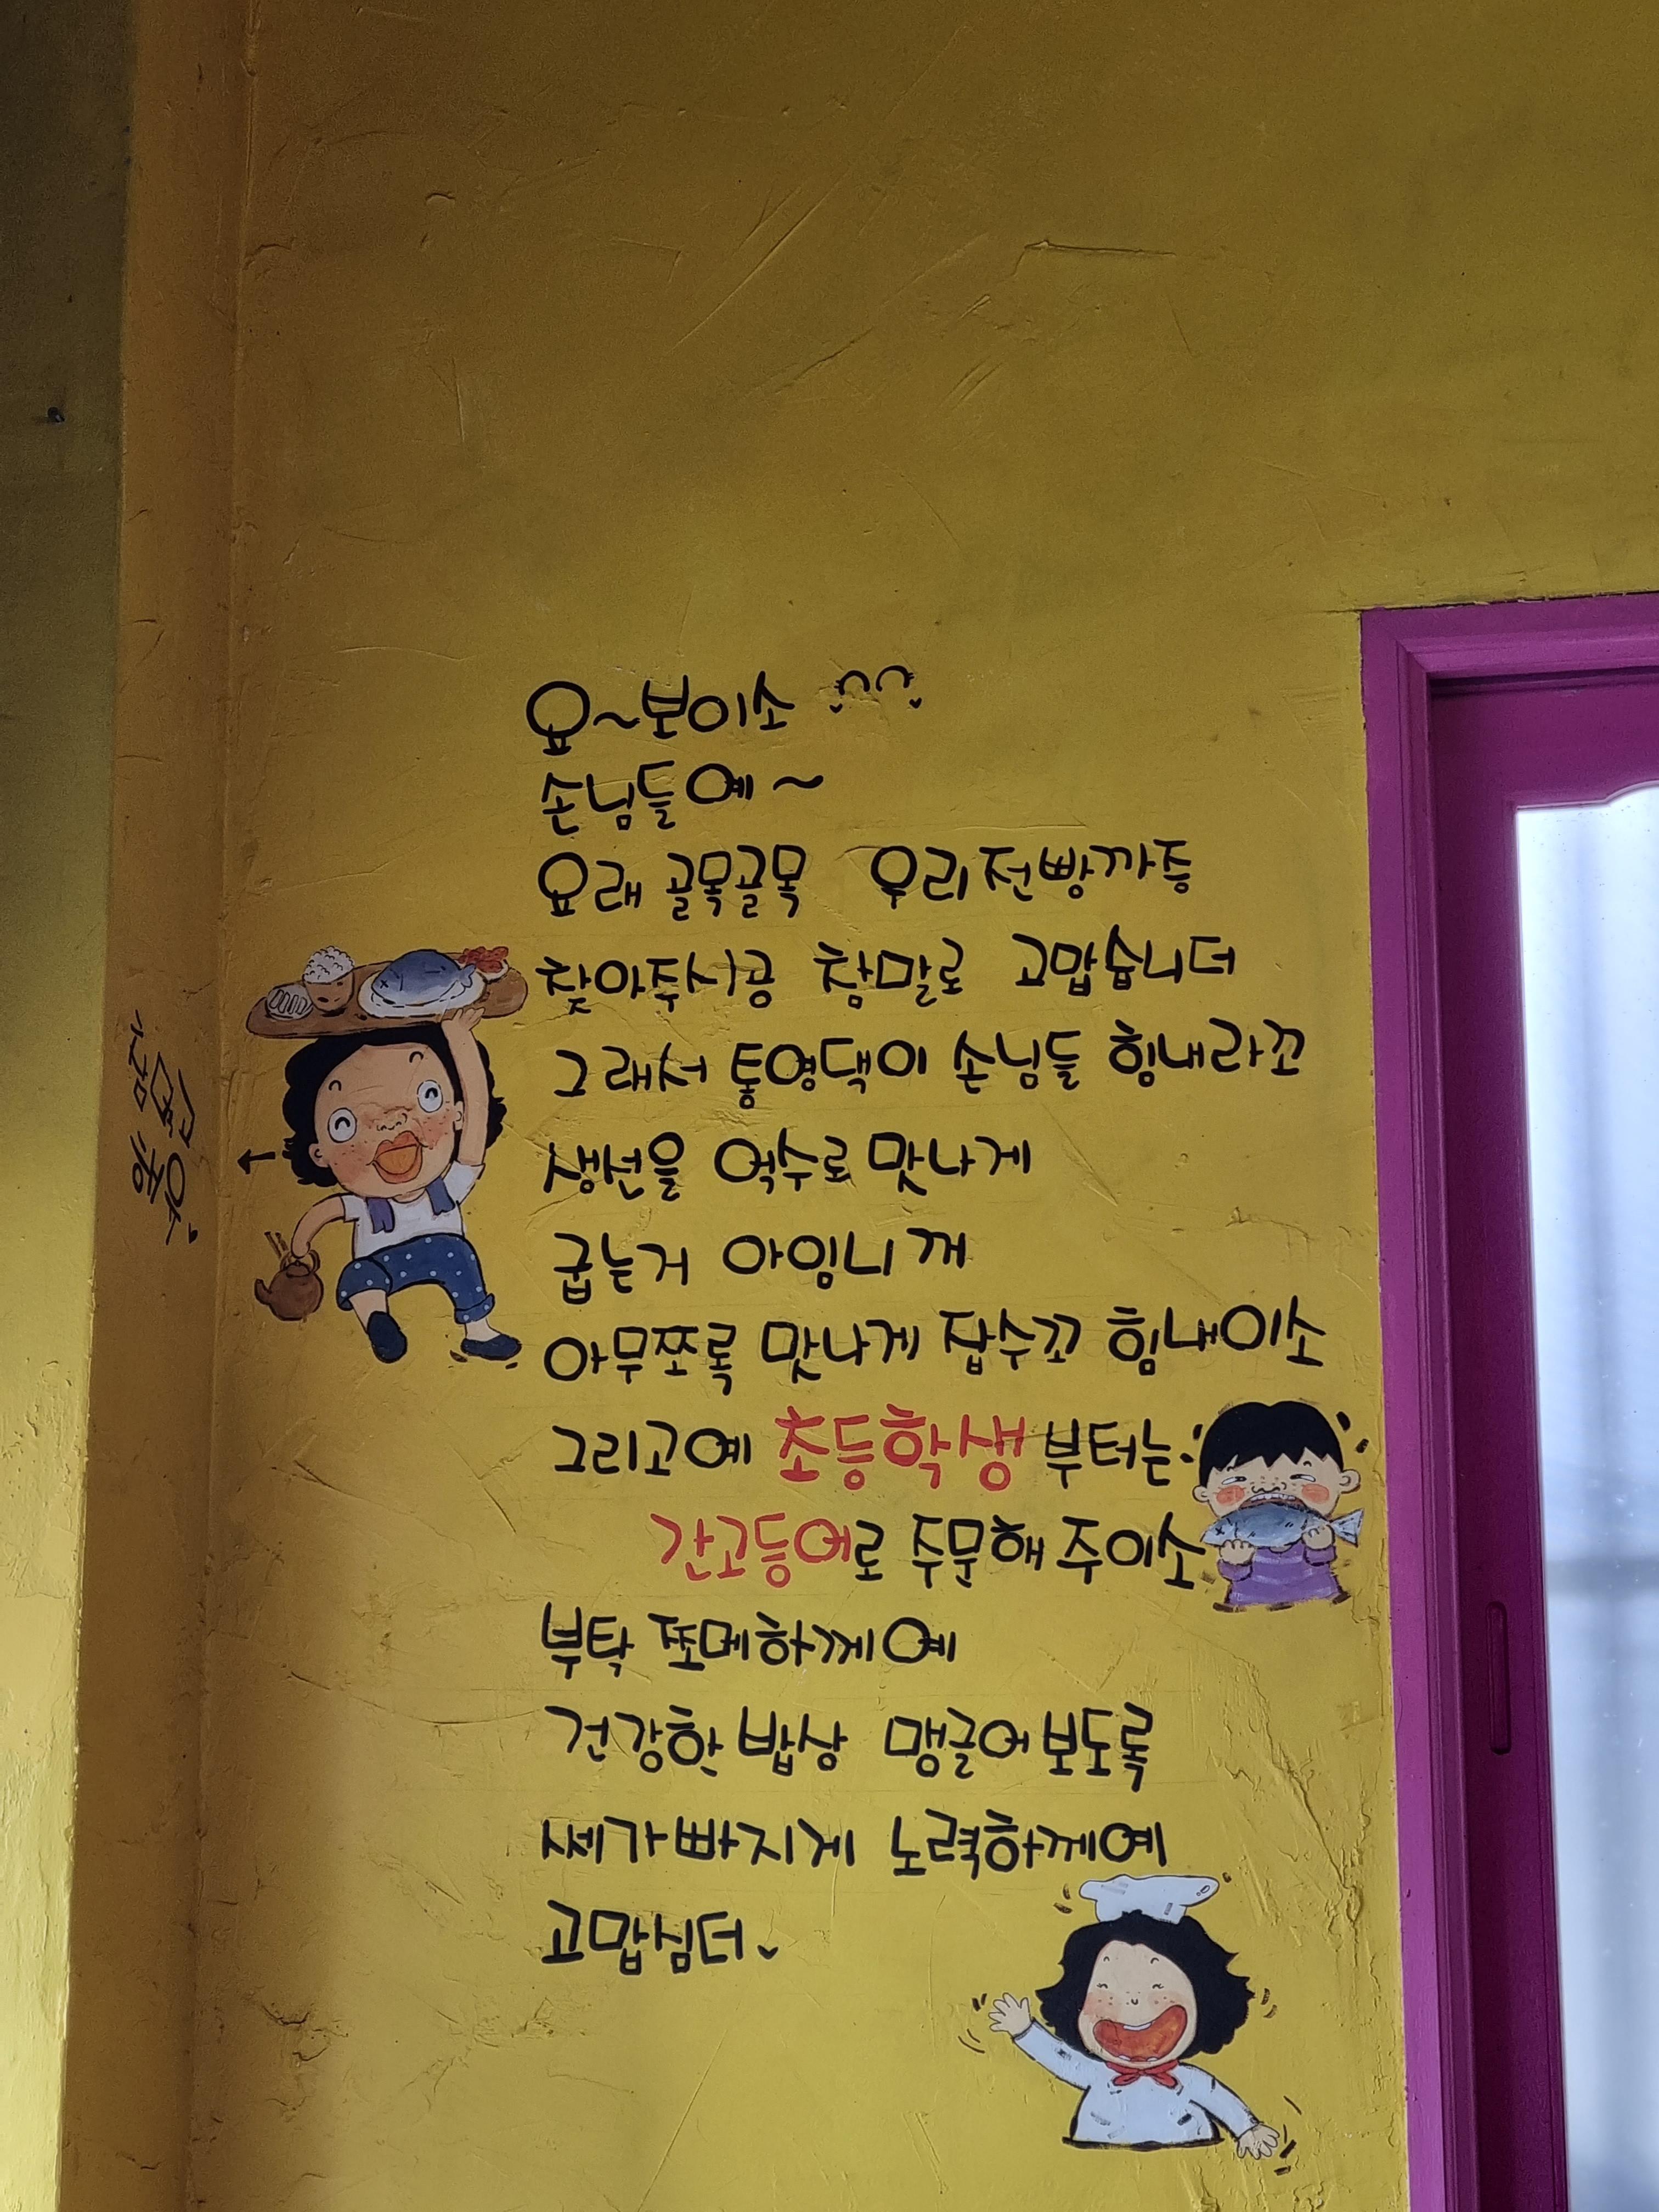 요~보이소
손님들예~
요래 골목골목 우리전빵까증
찾아주시공 참말로 고맙습니더
그래서 통영댁이 손님들 힘내라꼬
생선을 억수로 맛나게
굽는거 아임니꺼
아무쪼록 맛나게 잡수꼬 힘내이소
그리고예 초등학생부터는
간고등어로 주문해주이소
부탁 쪼메하께예
건강한밥상 맹글어보도록
쎄가빠지게 노력하께예
고맙심더